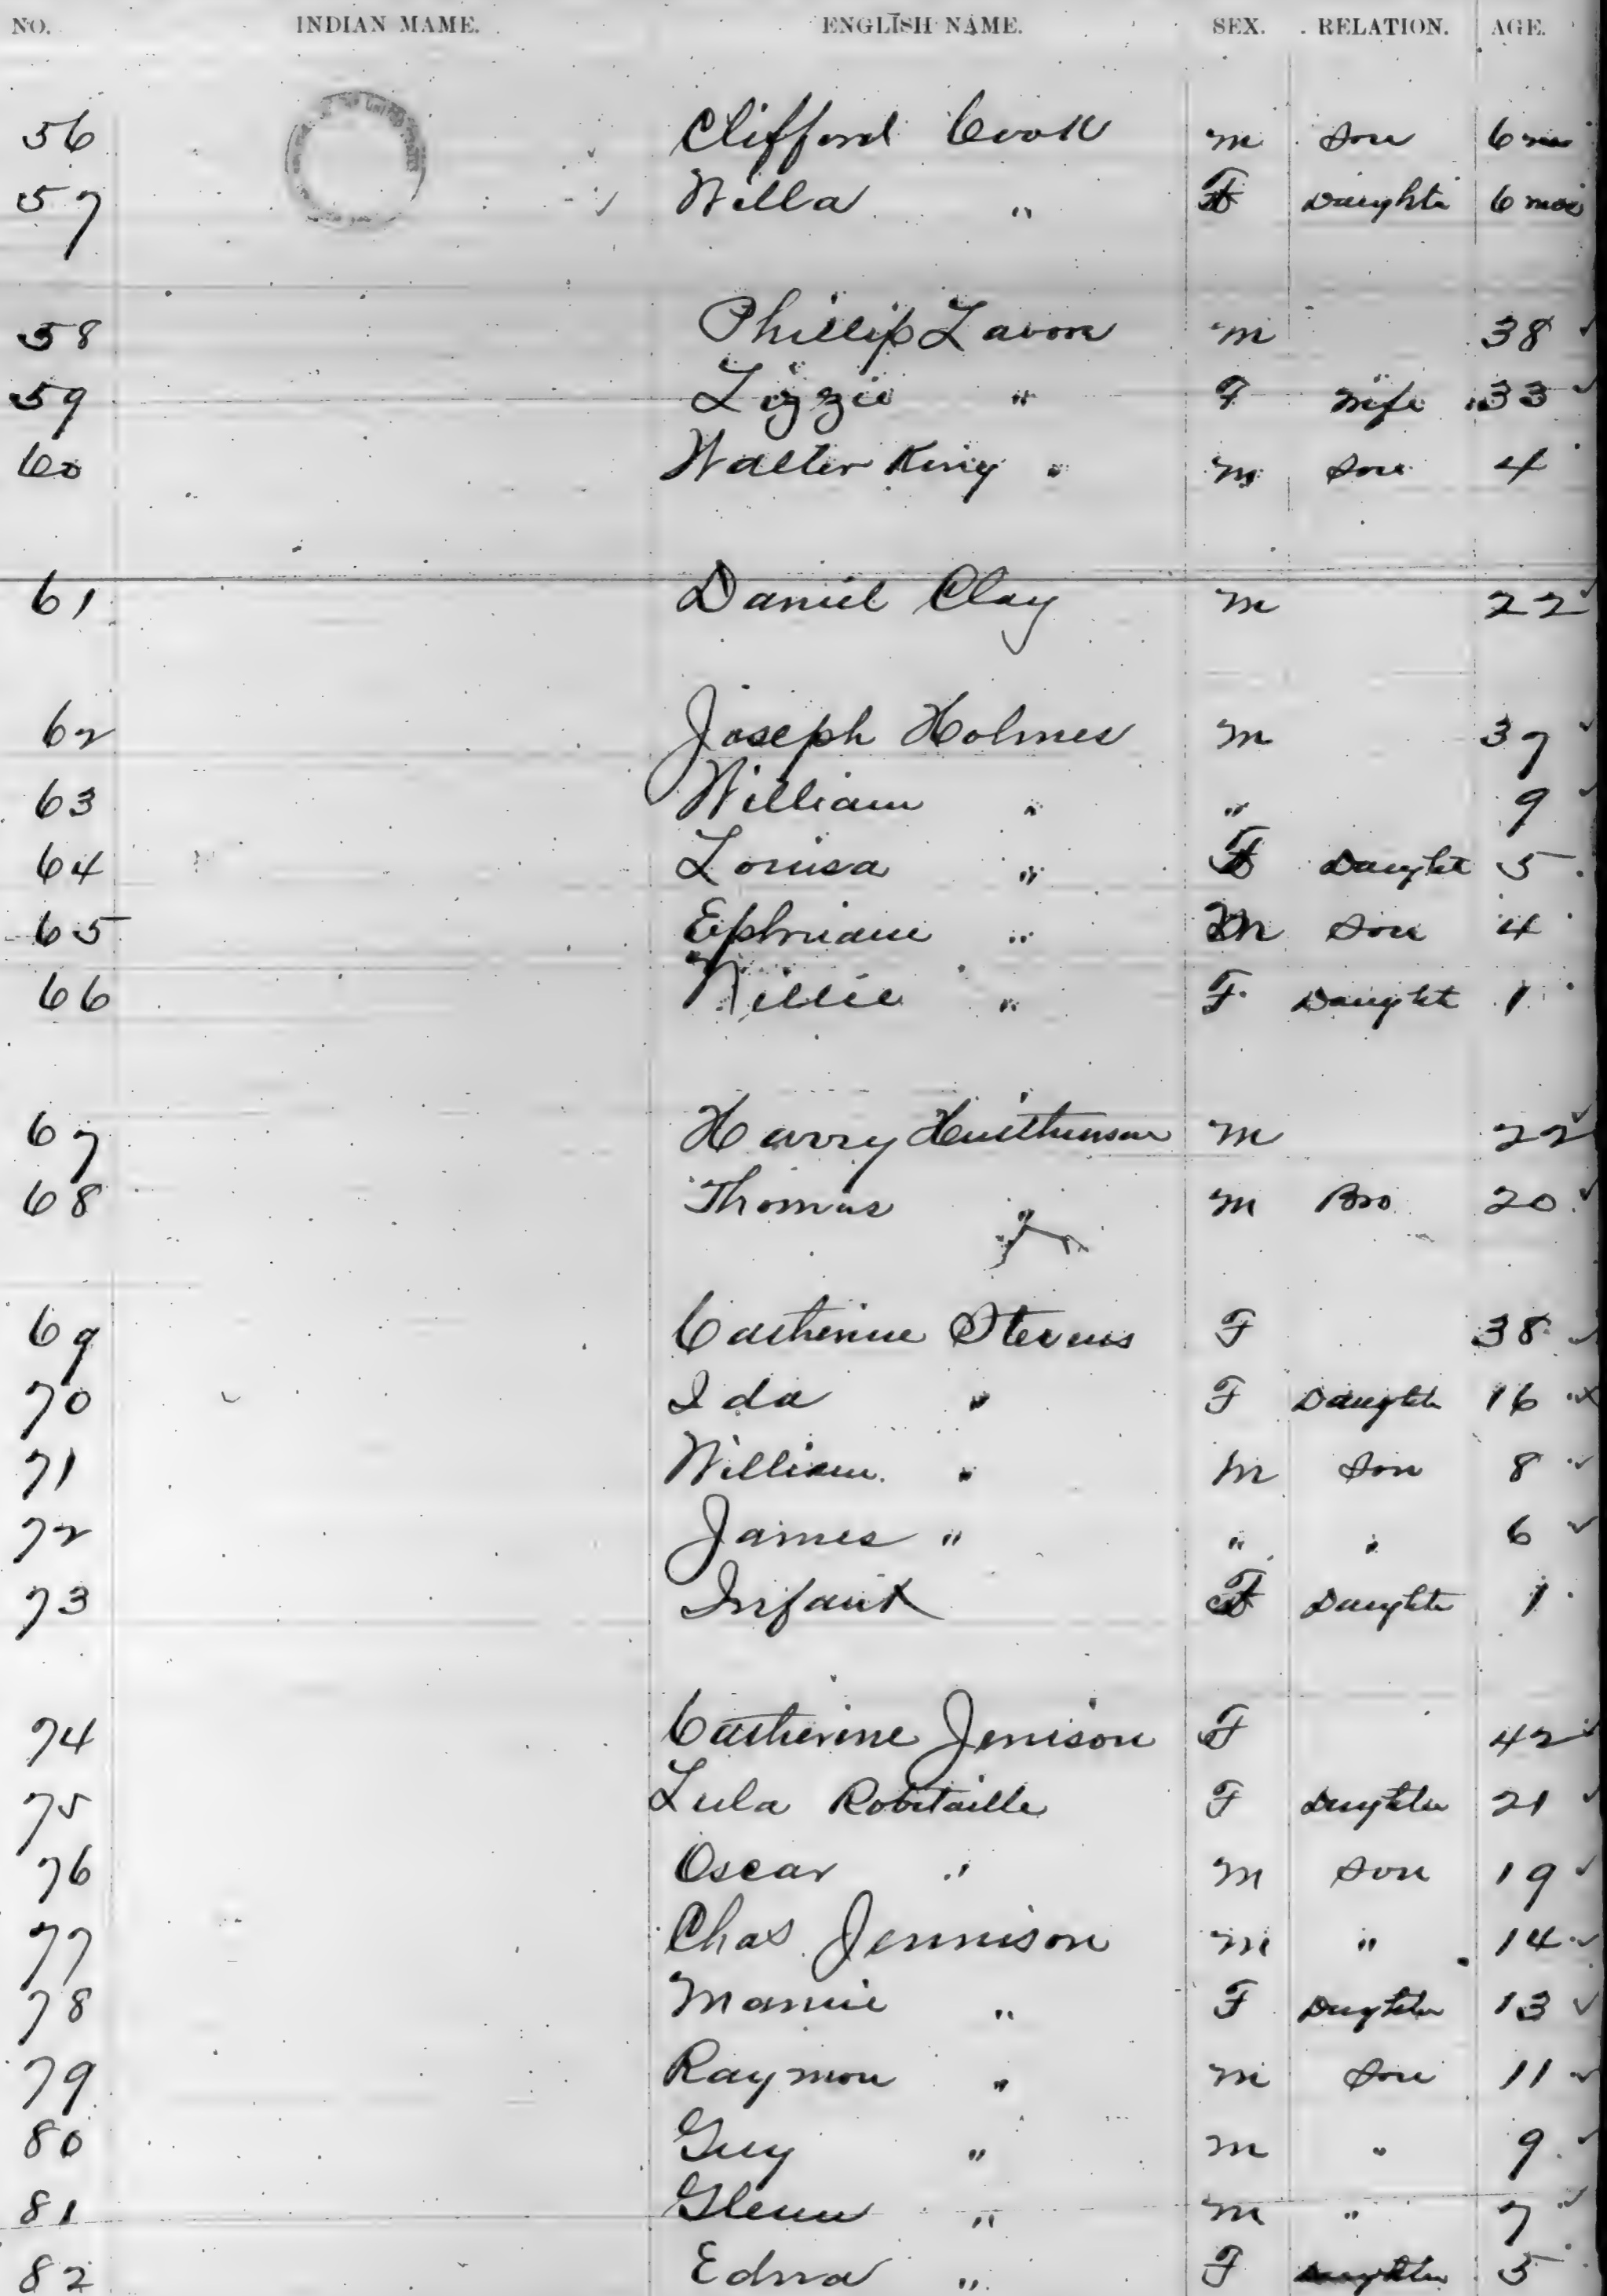 NO. INDIAN MAME. ENGLISH NAME. SEX. RELATION. AGE.
56 Clifford Cook m Son 6 mo
57 Willa " F Daughte 6 mos
58 Phillip Lavore m 38
59 Lizzie " F Wife 33
60 Walter King " m Son 4
61 Daniel Clay m 22
62 Joseph Holmes m 37
63 William " " 9
64 Louisa " F Daught 5
65 Ephriam " M Son 4
66 Nillie " F Daught 1
67 Harry m 22
68 Thomas " m Bro 20
69 Catherine Stevens F 38
70 Ida " F Daughte 16
71 William " m Son 8
72 James " " " 6
73 Infant F Daughte 1
74 Catherine Jenison F 42
75 Lula Robitaille F Daughter 21
76 Oscar " m Son 19
77 Chas. Jennison m " 14
78 Mamie " F Daughter 13
79 Raymon " m Son 11
80 Guy " m " 9
81 Glenn " m " 7
82 Edna " F Daughter 5